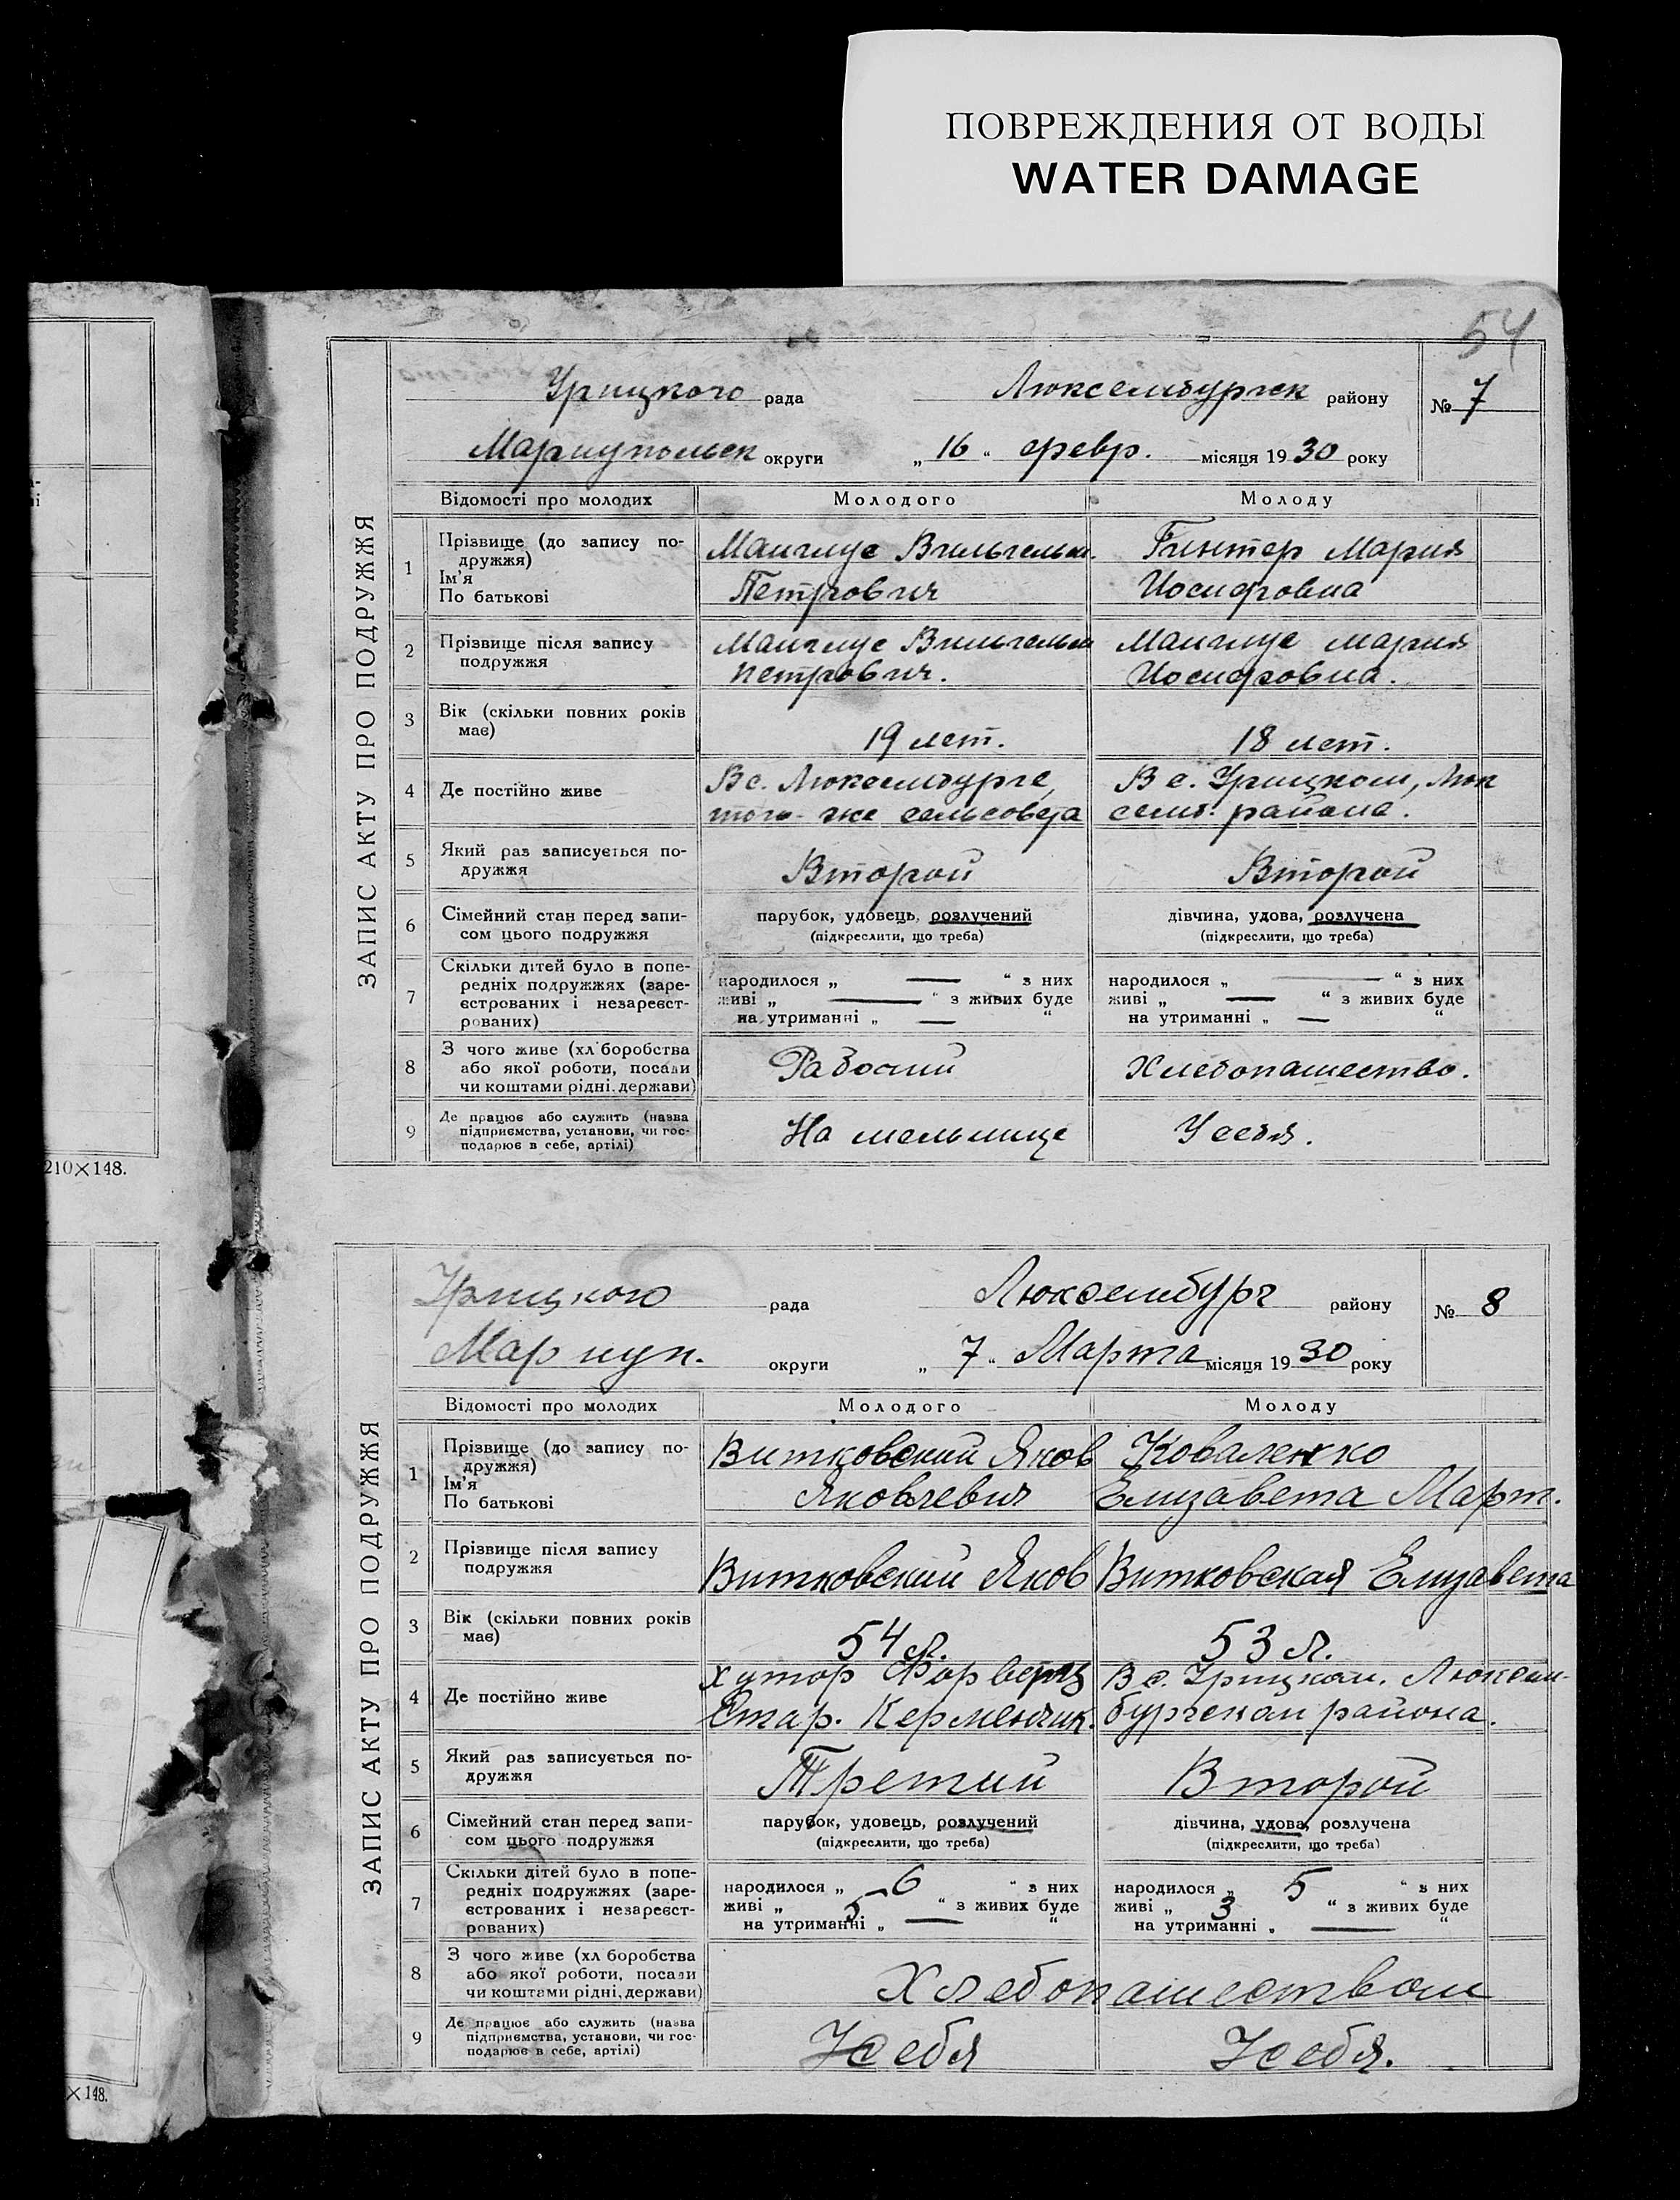 ПОВРЕЖДЕНИЯ ОТ ВОДЫ
WATER DAMAGE
54
Урицкого рада Люксембургск району № 7
Мариупольск округи „ 16 “ февр. місяця 1930 року
ЗАПИС АКТУ ПРО ПОДРУЖЖЯ
Відомості про молодих Молодого Молоду
1 Прізвище (до запису по-
дружжя)
Ім'я
По батькові
Вильгельм. Гинтер Мария
Петрович Иосифовна
2 Прізвище після запису
подружжя
Вильгельм Мария
Петрович. Иосифовна.
3 Вік (скільки повних років
має)
19 лет. 18 лет.
4 Де постійно живе
В с. Люксембурге, В с. Урицком, Люк
того-же сельсовета семб. района.
5 Який раз записується по-
дружжя
Второй Второй
6 Сімейний стан перед запи-
сом цього подружжя
парубок, удовець, розлучений дівчина, удова, розлучена
(підкреслити, що треба) (підкреслити, що треба)
7 Скільки дітей було в попе-
редніх подружжях (заре-
єстрованих і незареєст-
рованих)
народилося „ — “ з них народилося „ — “ з них
живі „ — “ з живих буде живі „ — “ з живих буде
на утриманні „ — “ на утриманні „ — “
8 З чого живе (хл боробства
або якої роботи, посади
чи коштами рідні, держави)
Рабочий Хлебопашество.
9 Де працює або служить (назва
підприємства, установи, чи гос-
подарює в себе, артілі)
На мельнице У себя.
210×148.
Урицкого рада Люксембург району № 8
Мариуп. округи „ 7 “ Марта місяця 1930 року
ЗАПИС АКТУ ПРО ПОДРУЖЖЯ
Відомості про молодих Молодого Молоду
1 Прізвище (до запису по-
дружжя)
Ім'я
По батькові
Витковский Яков Коваленко
Яковлевич Елизавета Март.
2 Прізвище після запису
подружжя
Витковский Яков Витковская Елизавета
3 Вік (скільки повних років
має)
54 л. 53 л.
4 Де постійно живе
хутор Форвертз В с. Урицком. Люксем-
Стар. Керменчик. бургском района.
5 Який раз записується по-
дружжя
Третий Второй
6 Сімейний стан перед запи-
сом цього подружжя
парубок, удовець, розлучений дівчина, удова, розлучена
(підкреслити, що треба) (підкреслити, що треба)
7 Скільки дітей було в попе-
редніх подружжях (заре-
єстрованих і незареєст-
рованих)
народилося „ 6 “ з них народилося „ 5 “ з них
живі „ 5 “ з живих буде живі „ 3 “ з живих буде
на утриманні „ — “ на утриманні „ — “
8 З чого живе (хл боробства
або якої роботи, посади
чи коштами рідні, держави)
Хлебопашеством
9 Де працює або служить (назва
підприємства, установи, чи гос-
подарює в себе, артілі)
У себя У себя.
×148.